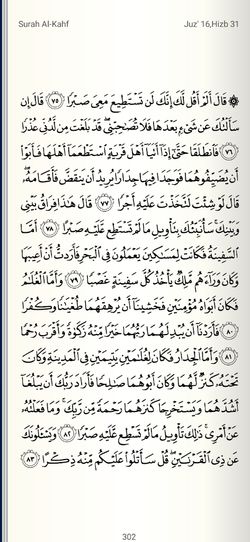 Surah Al-Kahf
Juz' 16,Hizb 31
۞ قَالَ أَلَمْ أَقُل لَّكَ إِنَّكَ لَن تَسْتَطِيعَ مَعِيَ صَبْرًا ٧٥ قَالَ إِن
سَأَلْتُكَ عَن شَيْءٍۭ بَعْدَهَا فَلَا تُصَٰحِبْنِي ۖ قَدْ بَلَغْتَ مِن لَّدُنِّي عُذْرًا
٧٦ فَٱنطَلَقَا حَتَّىٰٓ إِذَآ أَتَيَآ أَهْلَ قَرْيَةٍ ٱسْتَطْعَمَآ أَهْلَهَا فَأَبَوْا۟
أَن يُضَيِّفُوهُمَا فَوَجَدَا فِيهَا جِدَارًا يُرِيدُ أَن يَنقَضَّ فَأَقَامَهُۥ ۖ
قَالَ لَوْ شِئْتَ لَتَّخَذْتَ عَلَيْهِ أَجْرًا ٧٧ قَالَ هَٰذَا فِرَاقُ بَيْنِي
وَبَيْنِكَ ۚ سَأُنَبِّئُكَ بِتَأْوِيلِ مَا لَمْ تَسْتَطِع عَّلَيْهِ صَبْرًا ٧٨ أَمَّا
ٱلسَّفِينَةُ فَكَانَتْ لِمَسَٰكِينَ يَعْمَلُونَ فِي ٱلْبَحْرِ فَأَرَدتُّ أَنْ أَعِيبَهَا
وَكَانَ وَرَآءَهُم مَّلِكٌ يَأْخُذُ كُلَّ سَفِينَةٍ غَصْبًا ٧٩ وَأَمَّا ٱلْغُلَٰمُ
فَكَانَ أَبَوَاهُ مُؤْمِنَيْنِ فَخَشِينَآ أَن يُرْهِقَهُمَا طُغْيَٰنًا وَكُفْرًا
٨٠ فَأَرَدْنَآ أَن يُبْدِلَهُمَا رَبُّهُمَا خَيْرًا مِّنْهُ زَكَوٰةً وَأَقْرَبَ رُحْمًا
٨١ وَأَمَّا ٱلْجِدَارُ فَكَانَ لِغُلَٰمَيْنِ يَتِيمَيْنِ فِي ٱلْمَدِينَةِ وَكَانَ
تَحْتَهُۥ كَنزٌ لَّهُمَا وَكَانَ أَبُوهُمَا صَٰلِحًا فَأَرَادَ رَبُّكَ أَن يَبْلُغَآ
أَشُدَّهُمَا وَيَسْتَخْرِجَا كَنزَهُمَا رَحْمَةً مِّن رَّبِّكَ ۚ وَمَا فَعَلْتُهُۥ
عَنْ أَمْرِي ۚ ذَٰلِكَ تَأْوِيلُ مَا لَمْ تَسْطِع عَّلَيْهِ صَبْرًا ٨٢ وَيَسْـَٔلُونَكَ
عَن ذِي ٱلْقَرْنَيْنِ ۖ قُلْ سَأَتْلُوا۟ عَلَيْكُم مِّنْهُ ذِكْرًا ٨٣
302